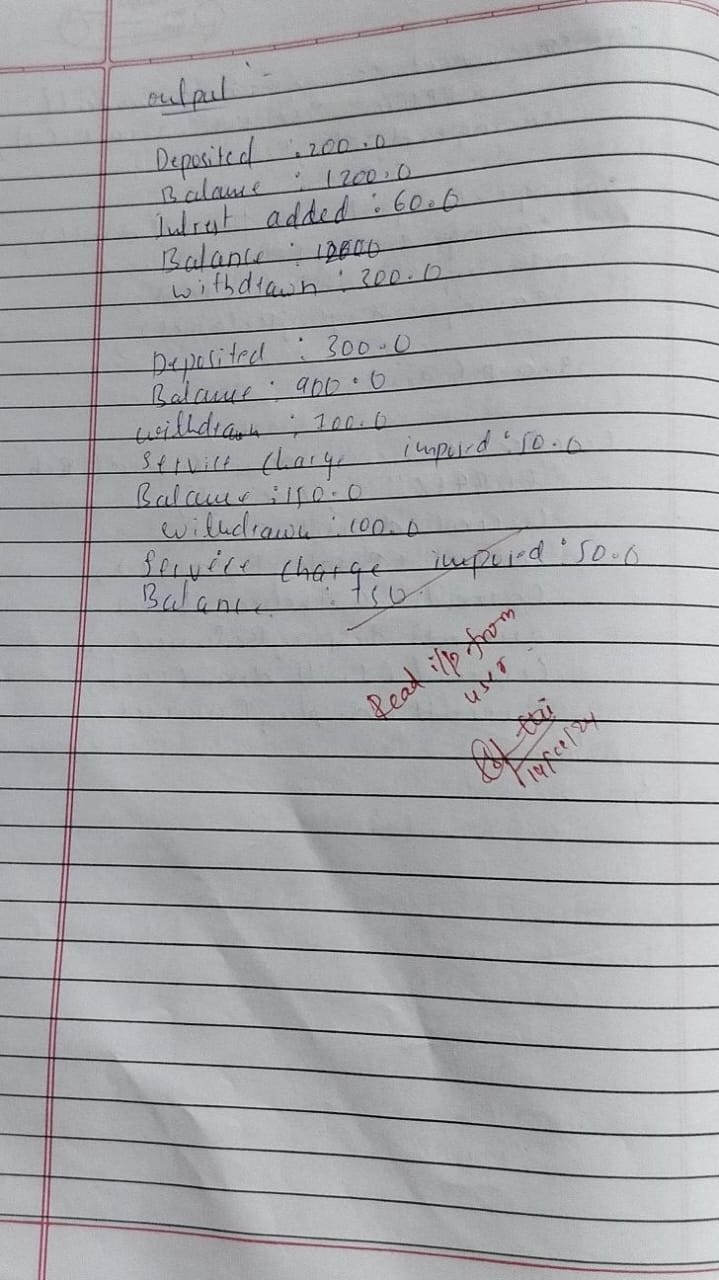 output :-
Deposited : 200.0
Balance : 1200.0
Intrest added : 60.0
Balance :
withdrawn : 300.0
Deposited : 300.0
Balance : 900.0
withdrawn : 700.0
Service charge imposed : 50.0
Balance : 150.0
withdrawn : 100.0
Service charge imposed : 50.0
Balance :
Read i/p from
user